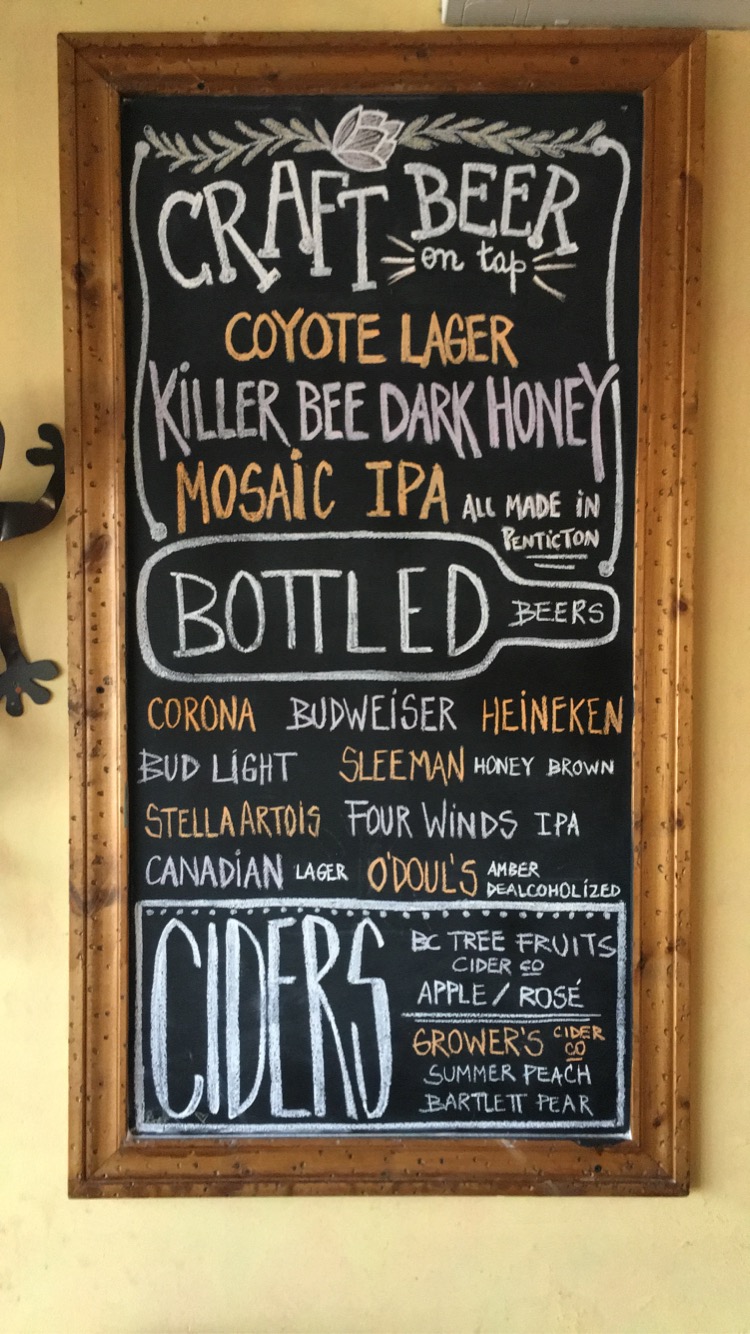 CRAFT BEER
on tap
COYOTE LAGER
KiLLER BEE DARK HONEY
MOSAiC IPA ALL MADE iN
PENTiCTON
BOTTLED BEERS
CORONA BUDWEiSER HEiNEKEN
BUD LiGHT SLEEMAN HONEY BROWN
STELLA ARTOiS FOUR WiNDS IPA
CANADiAN LAGER O'DOUL'S AMBER
DEALCOHOLiZED
CIDERS
BC TREE FRUITS
CIDER CO
APPLE / ROSÉ
GROWER'S CIDER CO
SUMMER PEACH
BARTLETT PEAR